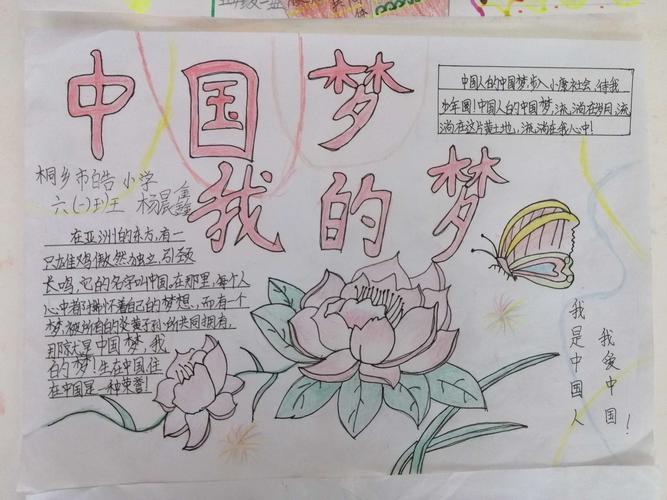 中国梦
我的梦
中国人的中国梦,步入小康社会,待我
少年圆!中国人的中国梦,流淌在岁月,流
淌在这片黄土地,流淌在我心中!
桐乡市 小学
六(一)班 杨晨鑫
在亚洲的东方,有一
只雄鸡傲然独立,引颈
长鸣,它的名字叫中国,在那里,每个人
心中都怀着自己的梦想,而有一个
梦,被所有的炎黄子孙所共同拥有,
那就是中国梦,我
的梦!生在中国,住
在中国是一种荣誉!
我爱中国!
我是中国人